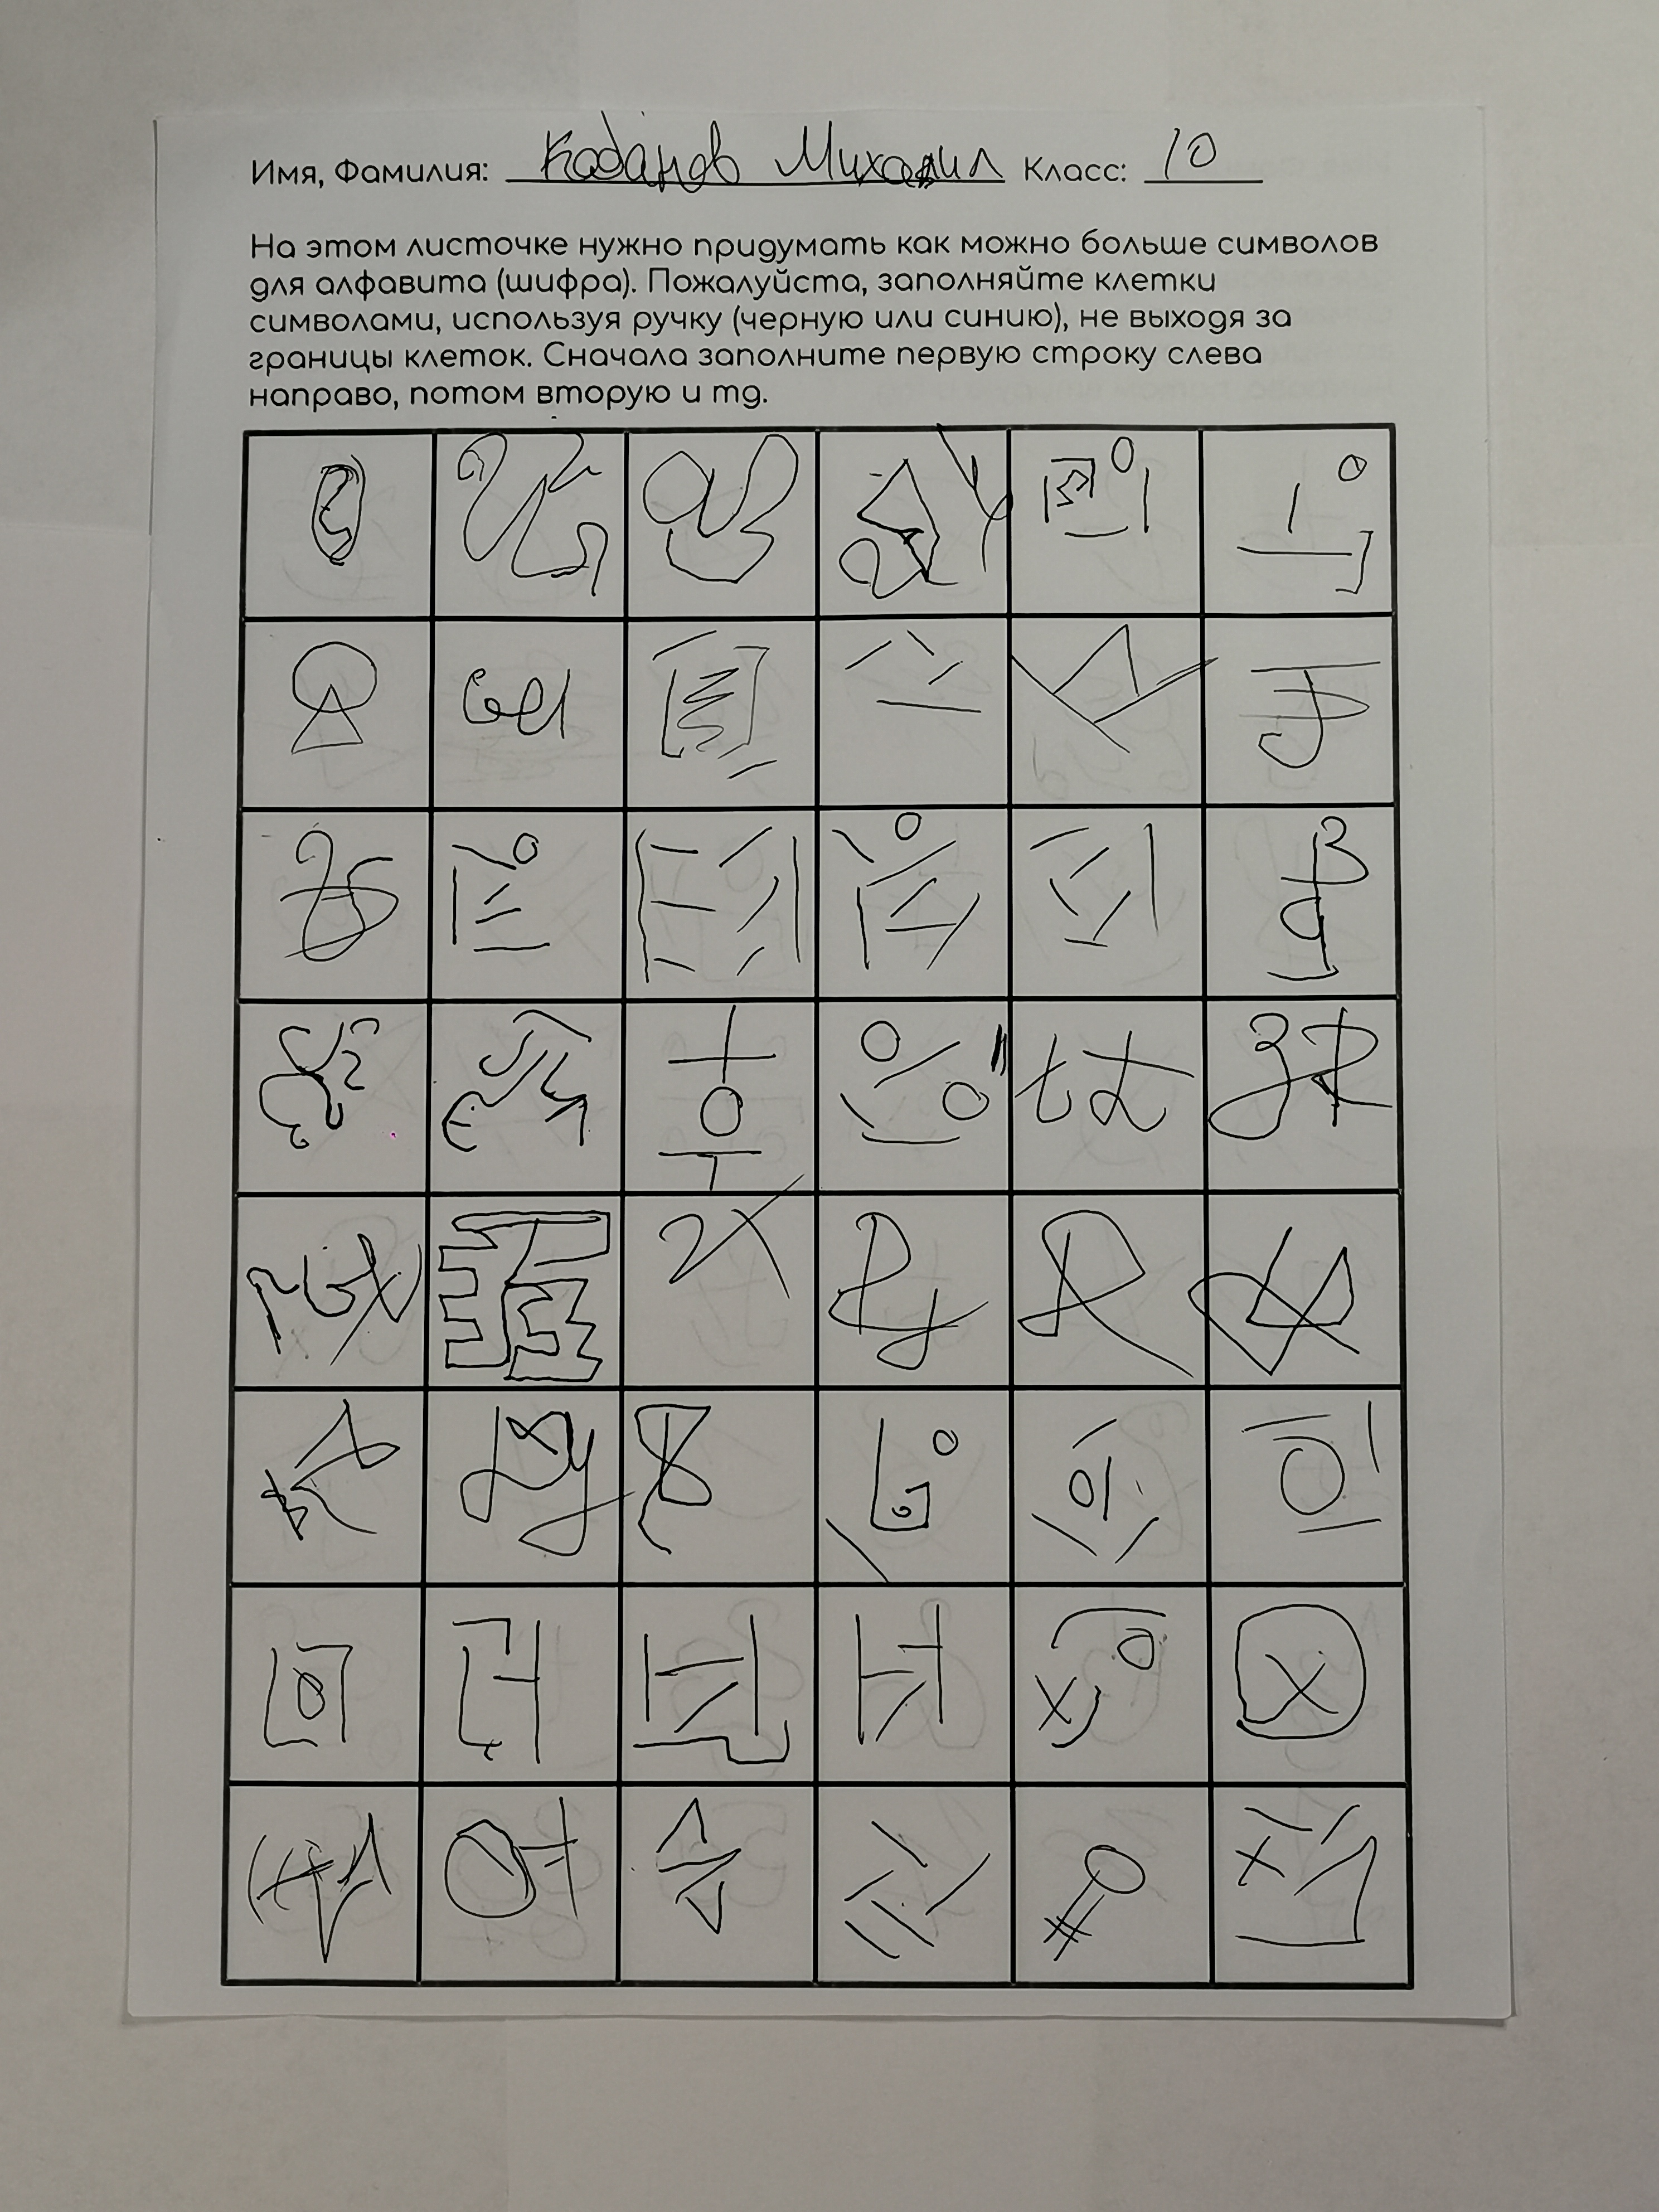 Имя, Фамилия: Кобанов Михаил Класс: 10
На этом листочке нужно придумать как можно больше символов
для алфавита (шифра). Пожалуйста, заполняйте клетки
символами, используя ручку (черную или синию), не выходя за
границы клеток. Сначала заполните первую строку слева
направо, потом вторую и тд.